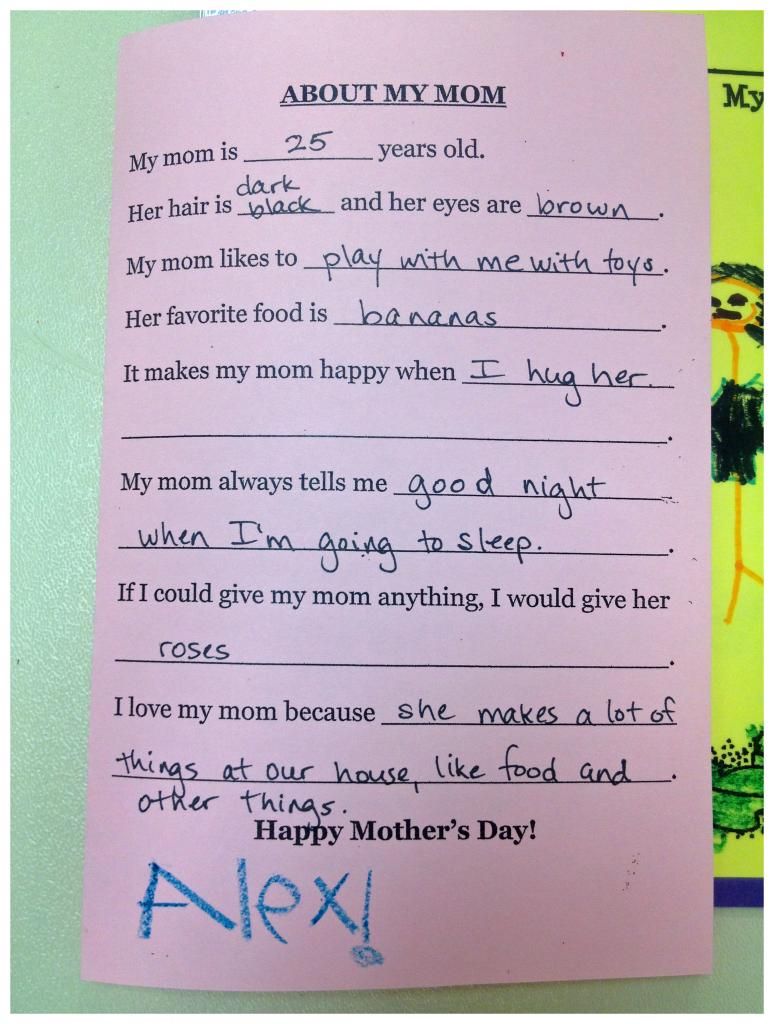 ABOUT MY MOM
My mom is 25 years old.
dark
Her hair is black and her eyes are brown.
My mom likes to play with me with toys.
Her favorite food is bananas.
It makes my mom happy when I hug her.
.
My mom always tells me good night
when I'm going to sleep. .
If I could give my mom anything, I would give her
roses.
I love my mom because she makes a lot of
things at our house, like food and.
other things.
Happy Mother's Day!
Alex!
My